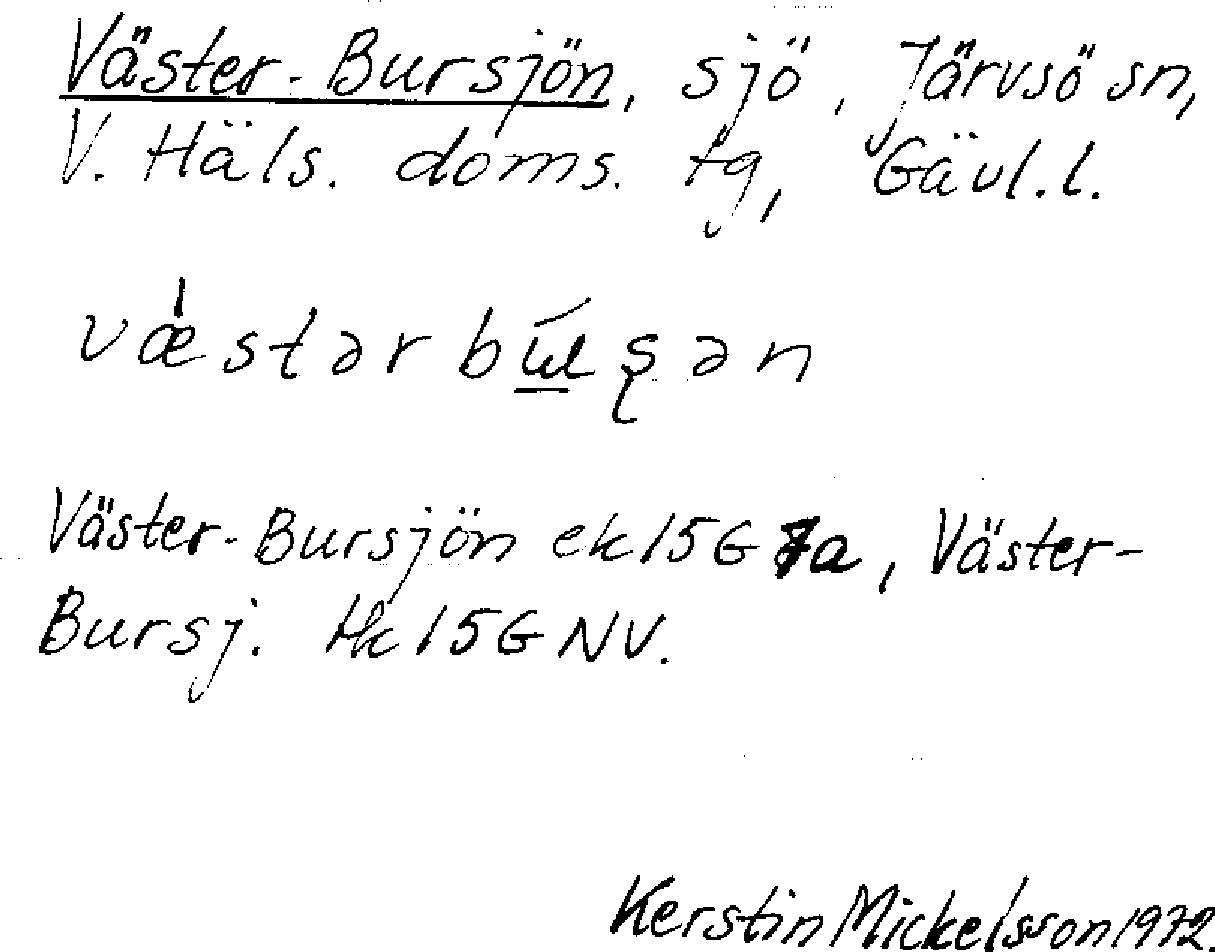 Väster-Bursjön, sjö, Järvsö sn,
V. Häls. doms. tg, Gävl. l.
væ̍stərbɯ́ʂən
Väster-Bursjön ek 15G 7a, Väster-
Bursj. Hk 15G NV.
Kerstin Mickelsson 1972.